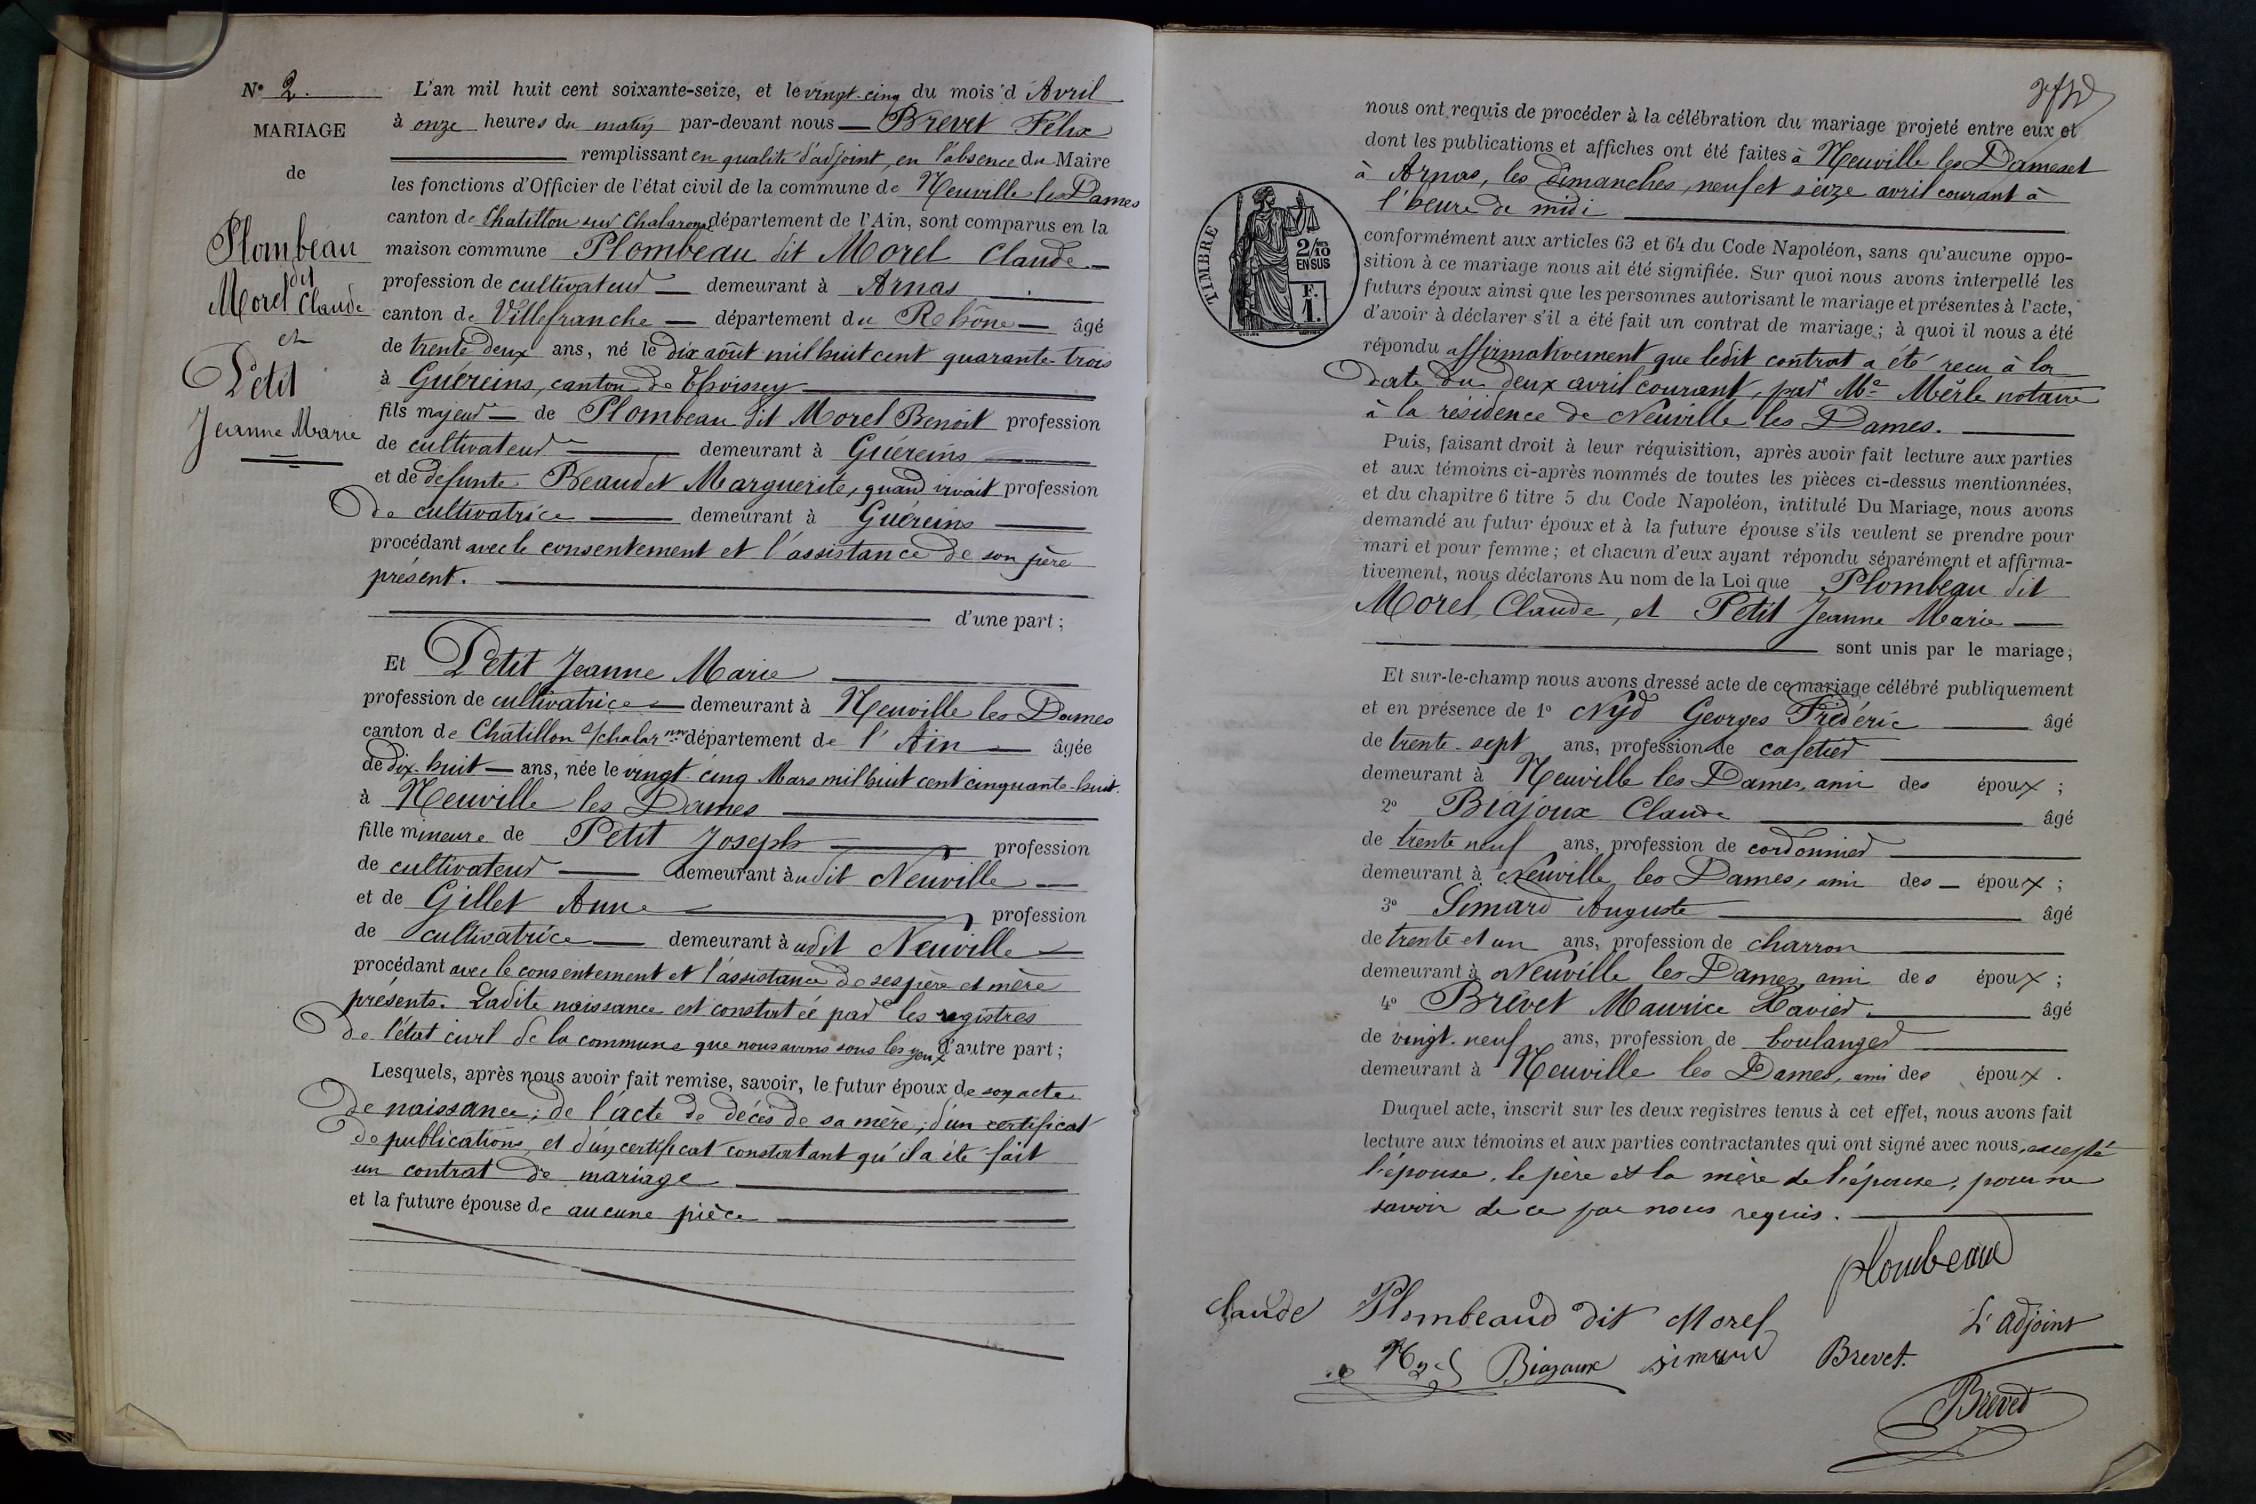 N° 2.
MARIAGE
de
Plombeau
dit
Morel Claude
et
Petit
Jeanne Marie
L'an mil huit cent soixante-seize, et le vingt-cinq du mois d'Avril
à onze heures du matin par-devant nous — Brevet Felix
remplissant en qualité d'adjoint, en l'absence du Maire
les fonctions d'Officier de l'état civil de la commune de Neuville les Dames
canton de Chatillon sur Chalaronne département de l'Ain, sont comparus en la
maison commune Plombeau dit Morel Claude —
profession de cultivateur — demeurant à Arnas
canton de Villefranche — département du Rhône — âgé
de trente deux ans, né le dix août mil huit cent quarante-trois
à Guéreins, canton de Thoissey
fils majeur — de Plombeau dit Morel Benoit profession
de cultivateur — demeurant à Guéreins
et de défunte Beaudet Marguerite, quand vivait profession
de cultivatrice — demeurant à Guéreins
procédant avec le consentement et l'assistance de son père
présent.
d'une part ;
Et Petit Jeanne Marie
profession de cultivatrice — demeurant à Neuville les Dames
canton de Châtillon s/chalar nne département de l'Ain — âgée
de dix-huit — ans, née le vingt cinq Mars mil huit cent cinquante-huit
à Neuville les Dames
fille mineure de Petit Joseph profession
de cultivateur — demeurant audit Neuville —
et de Gillet Anne profession
de cultivatrice — demeurant à udit Neuville
procédant avec le consentement et l'assistance de ses père et mère
présents. Ladite naissance est constatée par les registres
de l'état civil de la commune que nous avons sous les yeux d'autre part ;
Lesquels, après nous avoir fait remise, savoir, le futur époux de son acte
de naissance ; de l'acte de décès de sa mère ; d'un certificat
de publications, et d'un certificat constatant qu'il a été fait
un contrat de mariage
et la future épouse de aucune pièce
nous ont requis de procéder à la célébration du mariage projeté entre eux et
dont les publications et affiches ont été faites à Neuville les Dames et
à Arnas, les dimanches, neuf et seize avril courant à
l'heure de midi
TIMBRE
2/10 EN SUS
F. 1.
conformément aux articles 63 et 64 du Code Napoléon, sans qu'aucune oppo-
sition à ce mariage nous ait été signifiée. Sur quoi nous avons interpellé les
futurs époux ainsi que les personnes autorisant le mariage et présentes à l'acte,
d'avoir à déclarer s'il a été fait un contrat de mariage ; à quoi il nous a été
répondu affirmativement que ledit contrat a été recu à la
date du deux avril courant, par Me Merle notaire
à la résidence de Neuville les Dames.
Puis, faisant droit à leur réquisition, après avoir fait lecture aux parties
et aux témoins ci-après nommés de toutes les pièces ci-dessus mentionnées,
et du chapitre 6 titre 5 du Code Napoléon, intitulé Du Mariage, nous avons
demandé au futur époux et à la future épouse s'ils veulent se prendre pour
mari et pour femme ; et chacun d'eux ayant répondu séparément et affirma-
tivement, nous déclarons Au nom de la Loi que Plombeau dit
Morel, Claude, et Petit Jeanne Marie —
sont unis par le mariage ;
Et sur-le-champ nous avons dressé acte de ce mariage célébré publiquement
et en présence de 1° Nyd Georges Frédéric âgé
de trente-sept ans, profession de cafetier
demeurant à Neuville les Dames, ami des époux ;
2° Biajoux Claude âgé
de trente neuf ans, profession de cordonnier
demeurant à Neuville les Dames, ami des — époux ;
3° Simard Auguste âgé
de trente et un ans, profession de charron
demeurant à Neuville les Dames, ami des époux ;
4° Brevet Maurice Xavier âgé
de vingt-neuf ans, profession de boulanger
demeurant à Neuville les Dames, ami des époux .
Duquel acte, inscrit sur les deux registres tenus à cet effet, nous avons fait
lecture aux témoins et aux parties contractantes qui ont signé avec nous, excepté
l'épouse, le père et la mère de l'épouse, pour ne
savoir de ce par nous requis.
plombeaud
claude Plombeaud dit Morel
L'adjoint
Nyd Biajoux simard Brevet.
Brevet